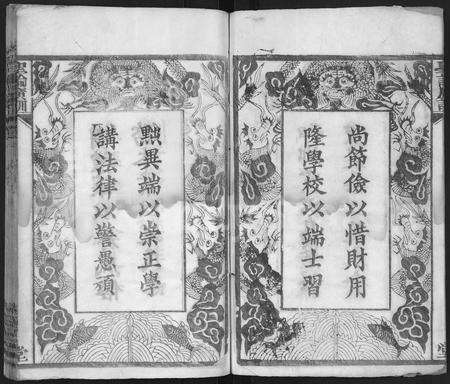 尚節儉以惜財用
隆學校以端士習
黜異端以崇正學
講法律以警愚頑
堂
堂